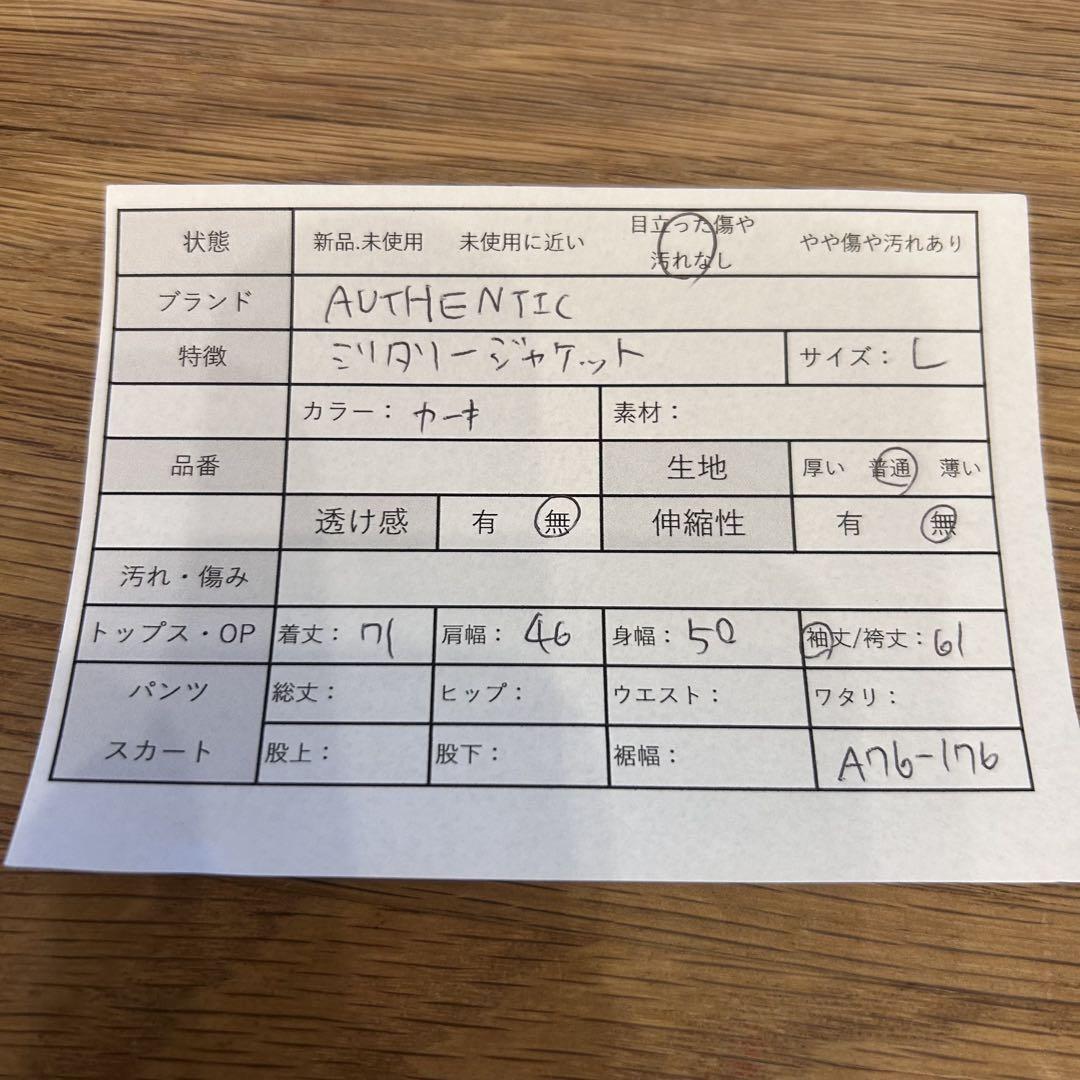 状態 新品.未使用 未使用に近い 目立った傷や汚れなし やや傷や汚れあり
ブランド AUTHENTIC
特徴 ミリタリージャケット サイズ： L
カラー： カーキ 素材：
品番 生地 厚い 普通 薄い
透け感 有 無 伸縮性 有 無
汚れ・傷み
トップス・OP 着丈： 71 肩幅： 46 身幅： 50 袖丈/袴丈： 61
パンツ 総丈： ヒップ： ウエスト： ワタリ：
スカート 股上： 股下： 裾幅： A76-176